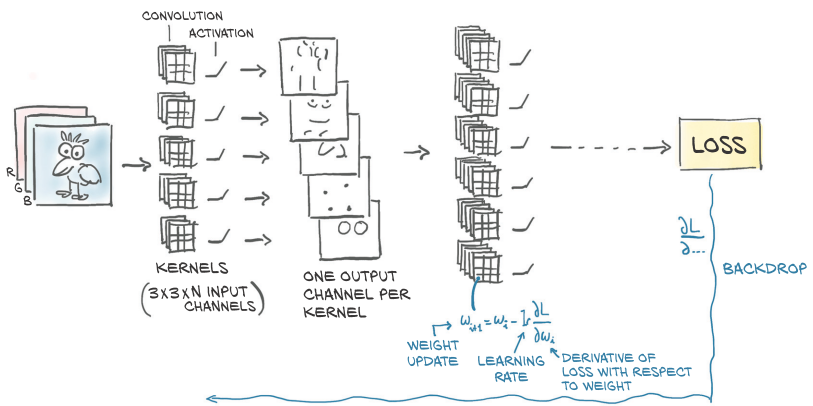 CONVOLUTION
ACTIVATION
R
G
B
LOSS
∂L
∂...
BACKDROP
KERNELS
(3x3xN INPUT
CHANNELS)
ONE OUTPUT
CHANNEL PER
KERNEL
ωi+1 = ωi - lr ∂L
∂ωi
WEIGHT
UPDATE
LEARNING
RATE
DERIVATIVE OF
LOSS WITH RESPECT
TO WEIGHT